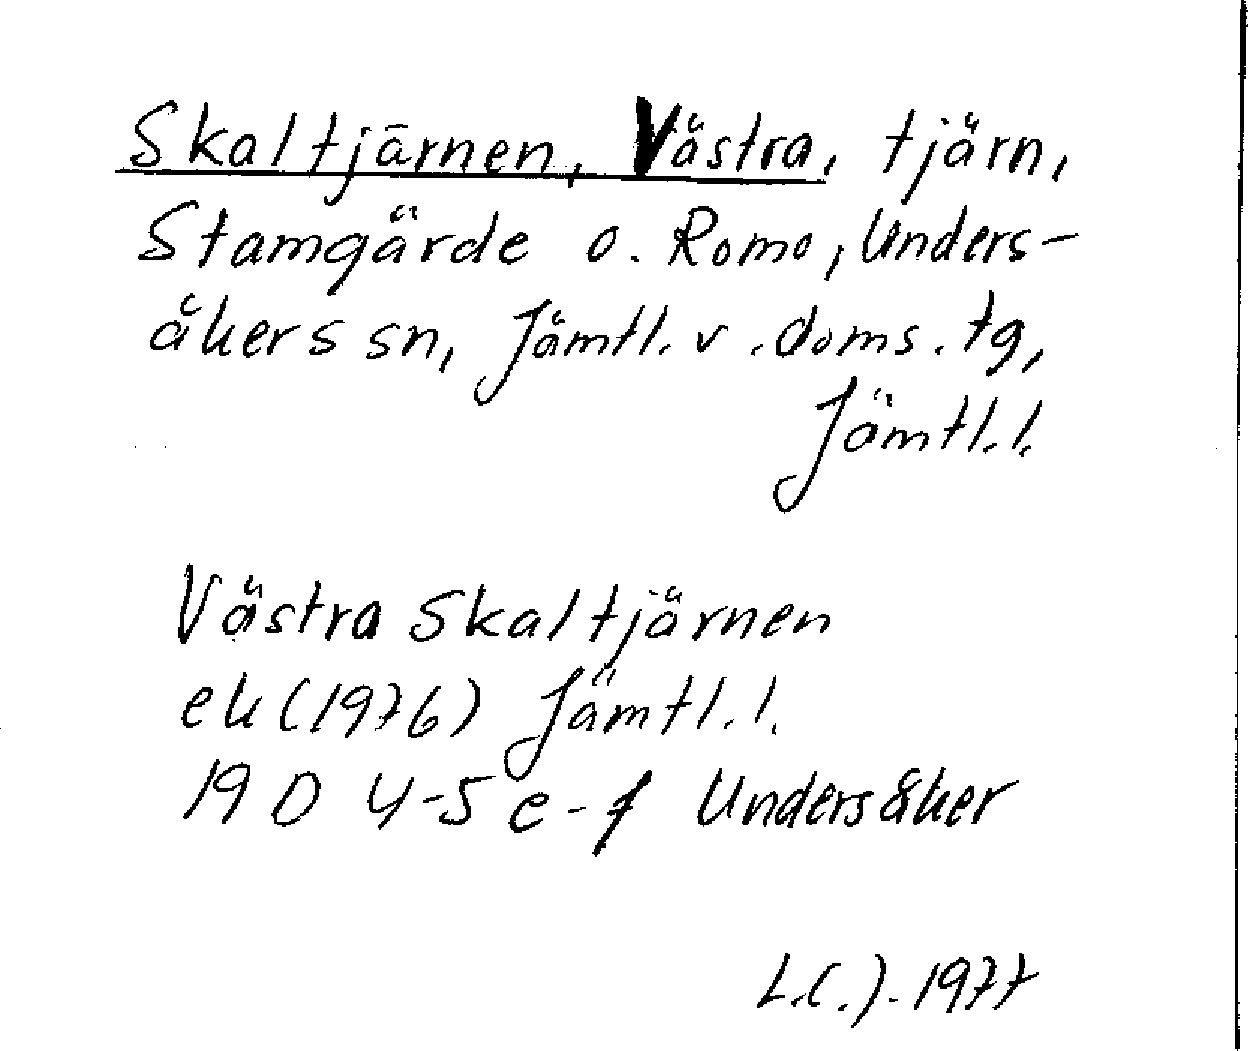 Skaltjärnen, Västra, tjärn,
Stamgärde o. Romo, Unders-
åkers sn, Jämtl. v. doms. tg,
Jämtl. l.
Västra Skaltjärnen
ek (1976) Jämtl. l.
19 D 4-5 e-f Undersåker
L.C.J. 1977